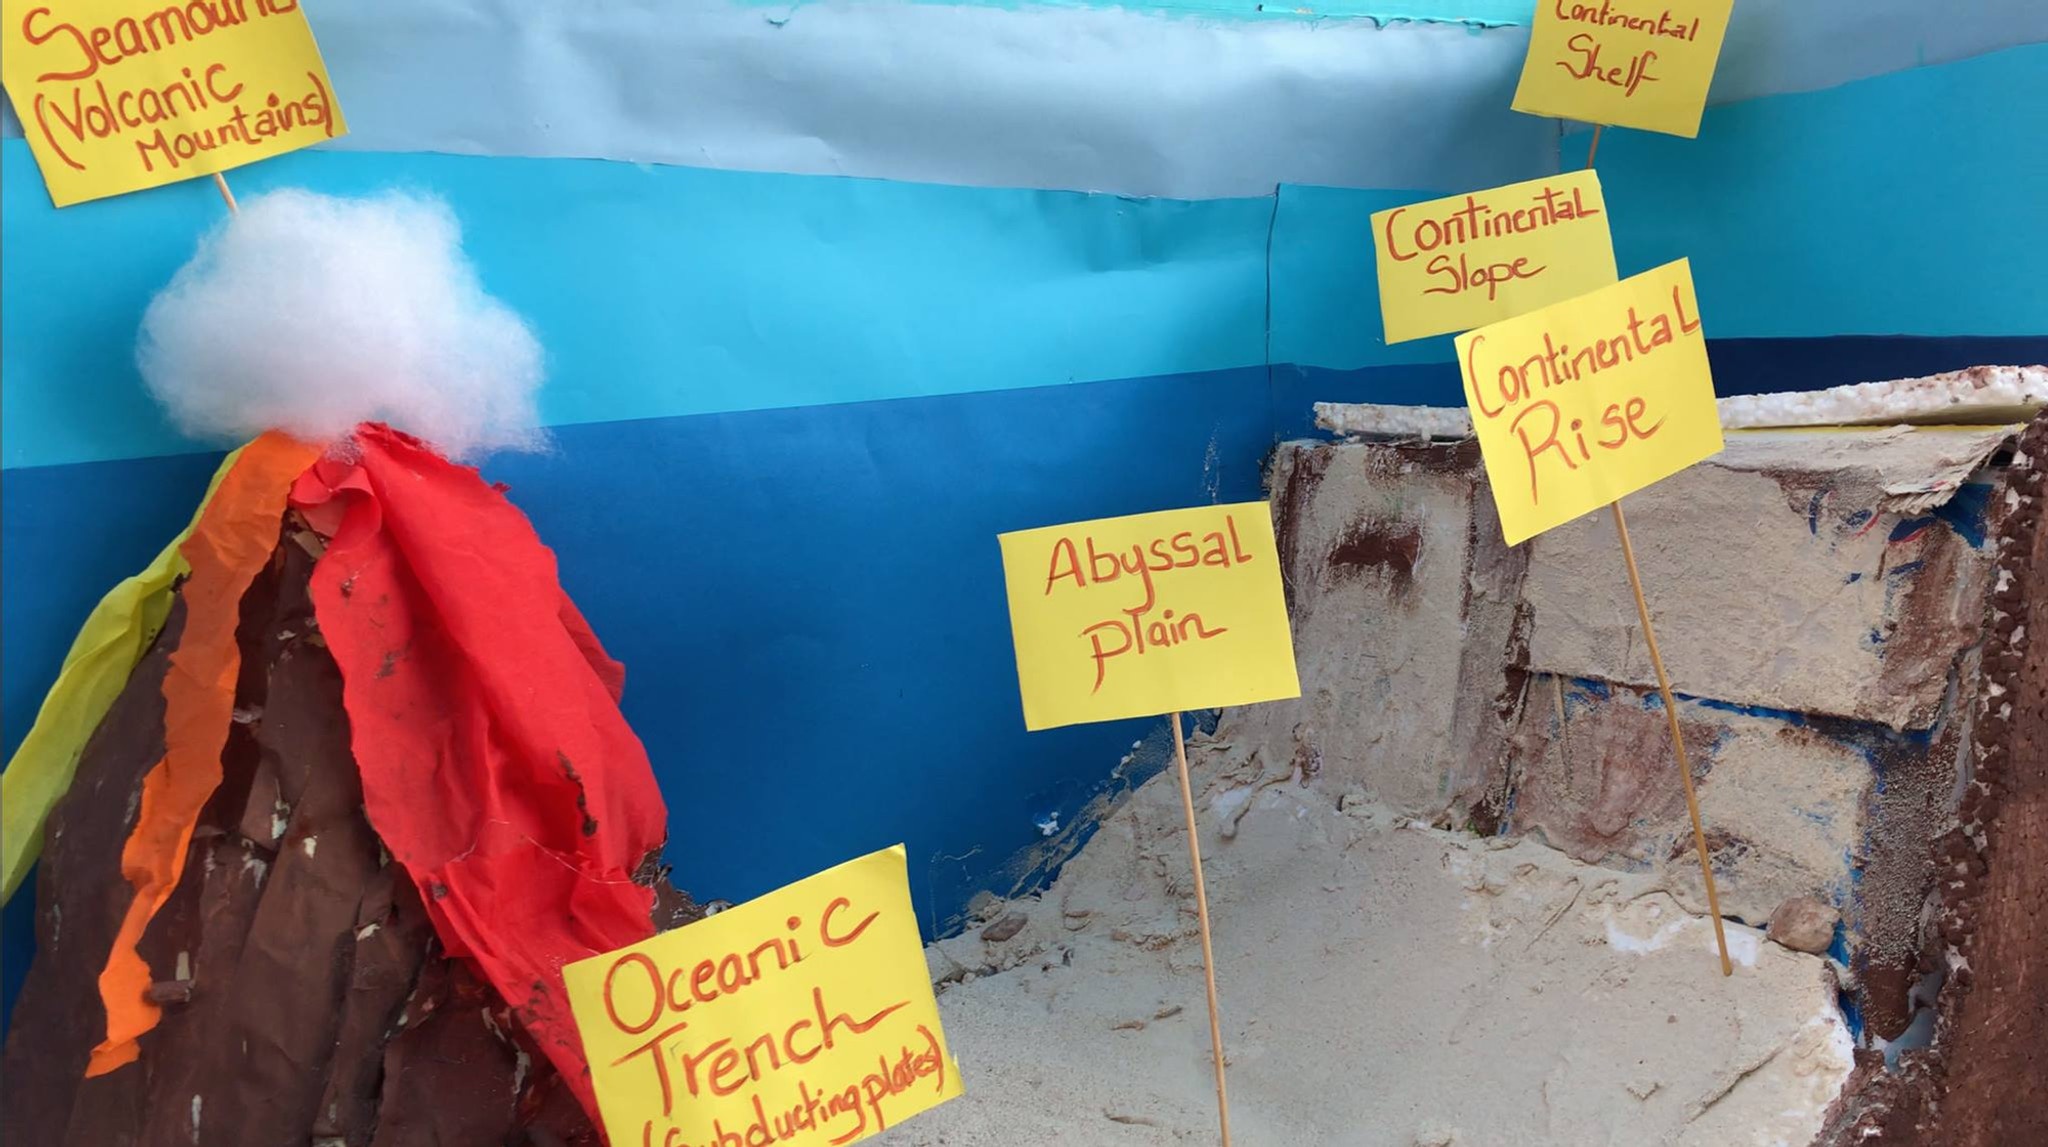 Seamounts
(Volcanic
Mountains)
Continental
Shelf
Continental
Slope
Continental
Rise
Abyssal
plain
Oceanic
Trench
(Subducting plates)